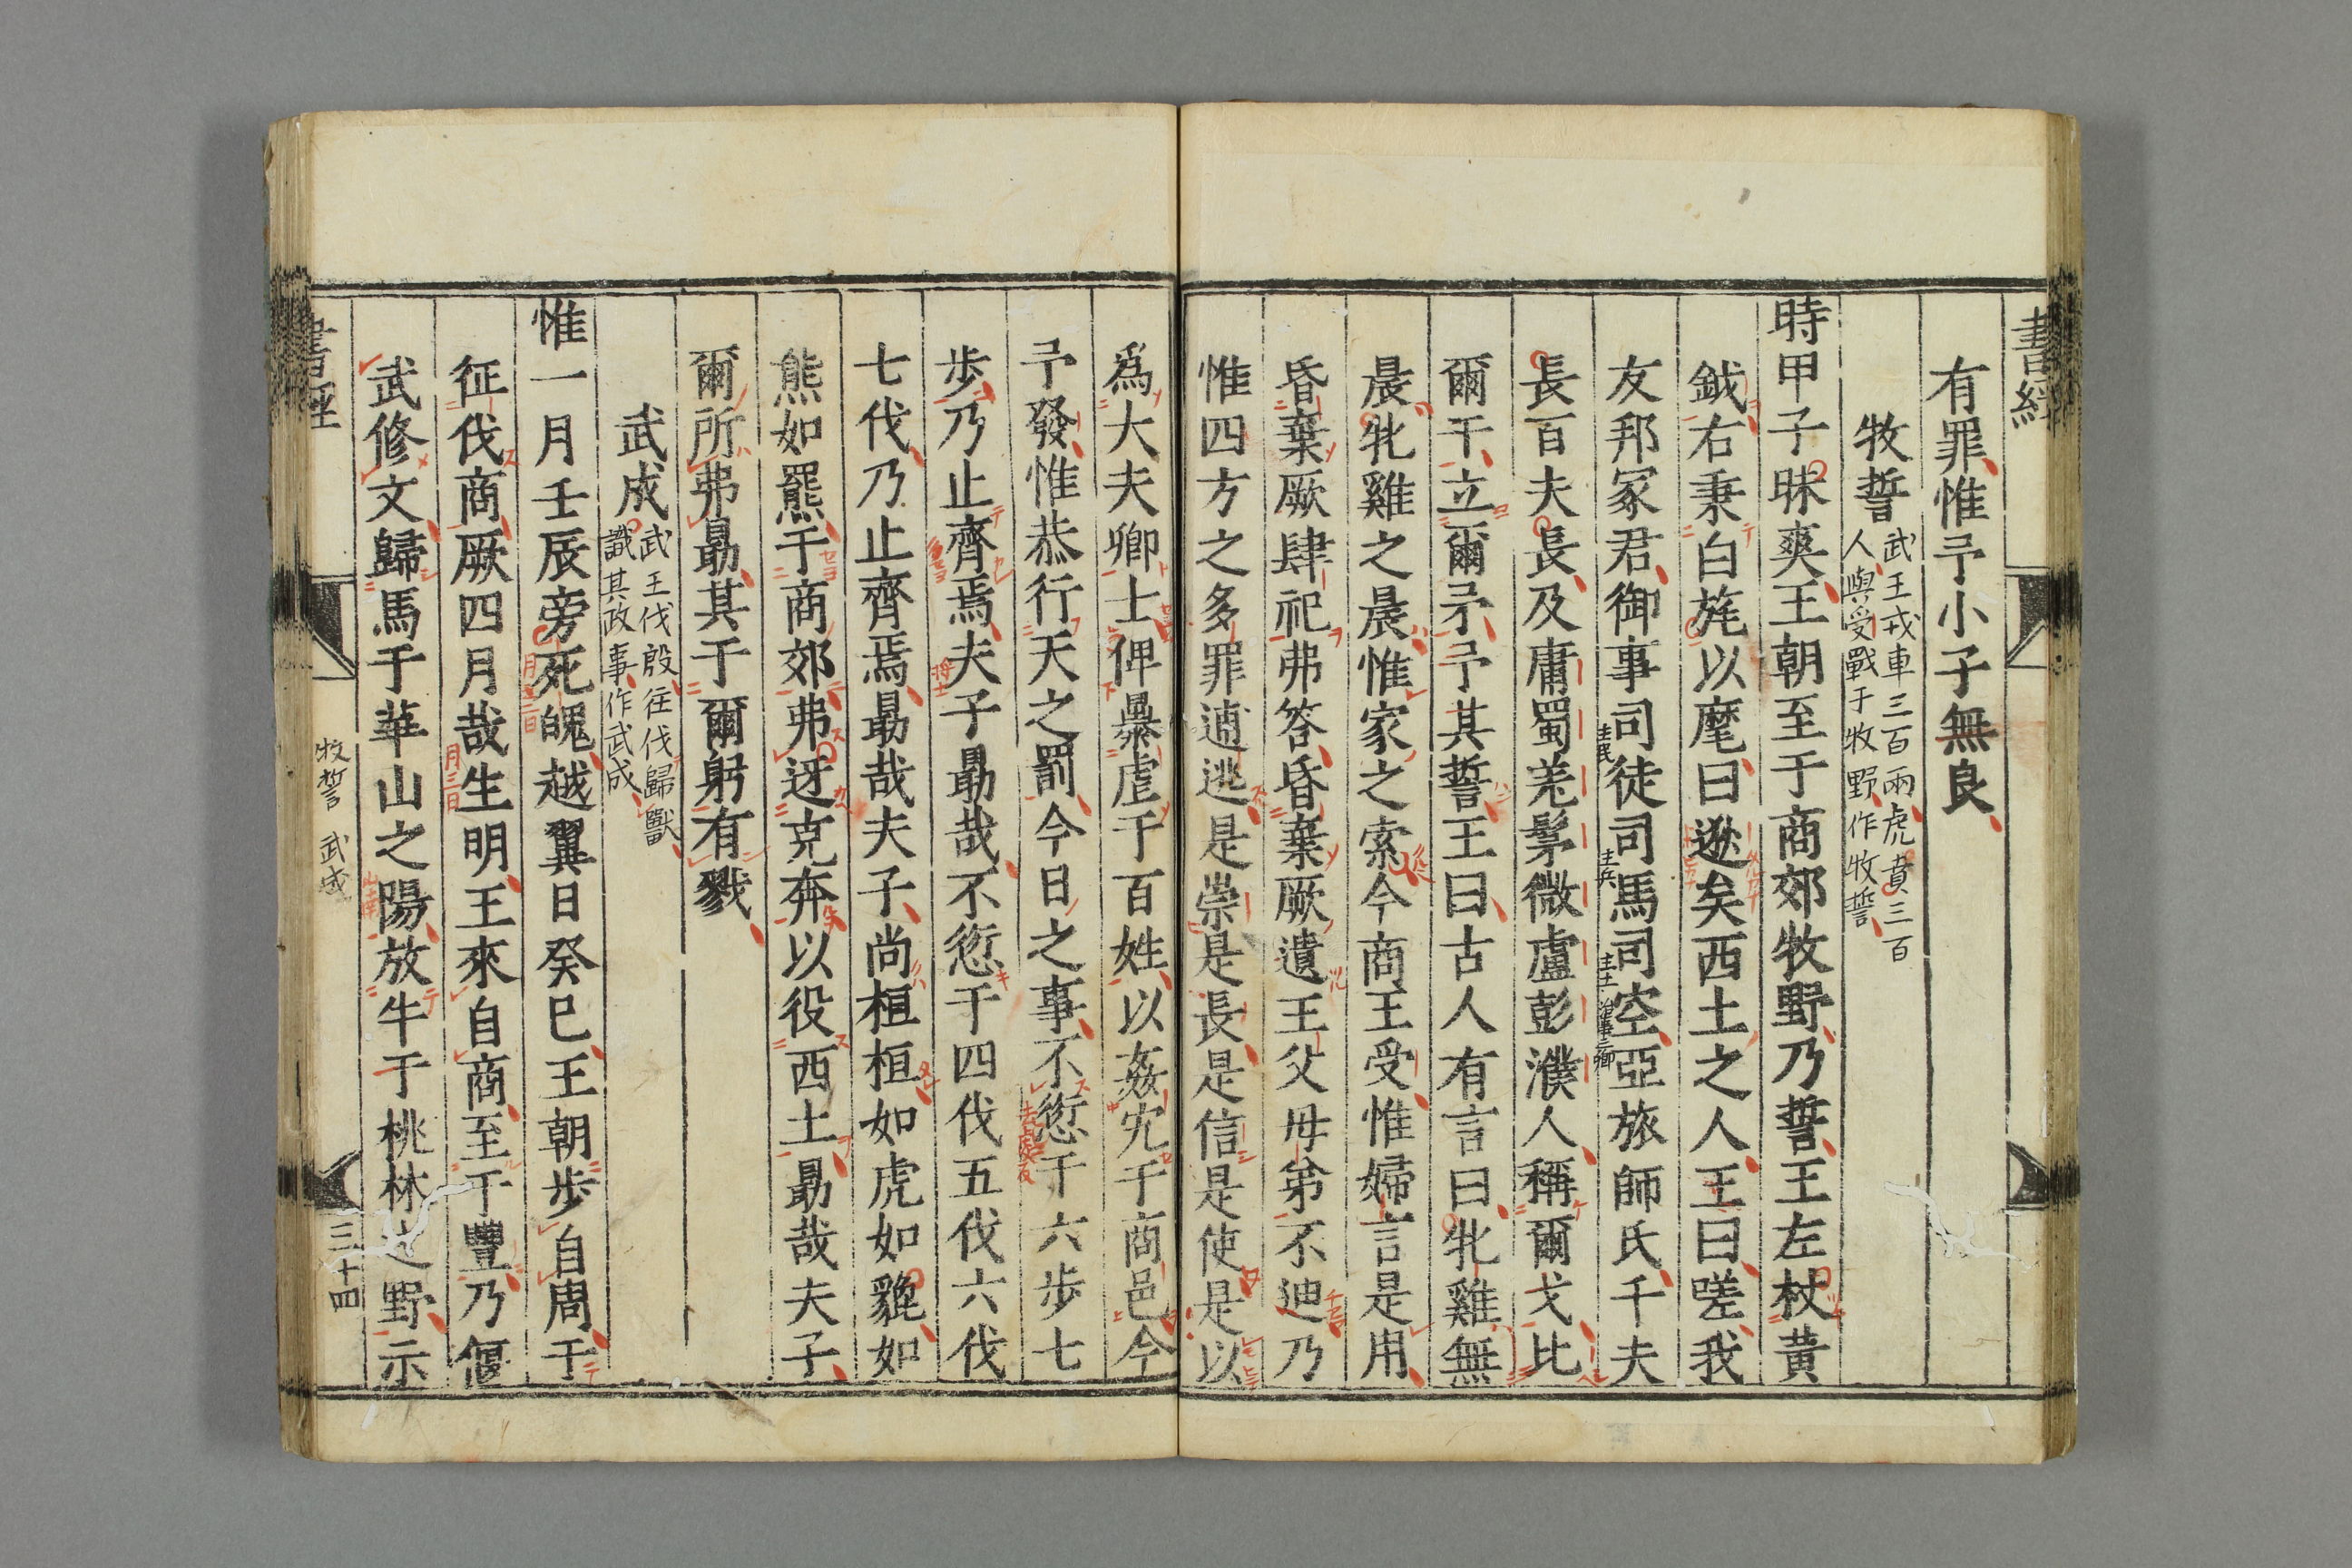 書經
有罪惟予小子無良
牧誓
武王戎車三百兩虎賁三百
人與受戰于牧野作牧誓
時甲子昧爽王朝至于商郊牧野乃誓王左杖黃
鉞右秉白旄以麾曰逖矣西土之人王曰嗟我
友邦冢君御事司徒司馬司空亞旅師氏千夫
主民
主兵
主土
長百夫長及庸蜀羌髳微盧彭濮人稱爾戈比
爾干立爾矛予其誓王曰古人有言曰牝雞無
晨牝雞之晨惟家之索今商王受惟婦言是用
昏棄厥肆祀弗答昏棄厥遺王父母弟不迪乃
惟四方之多罪逋逃是崇是長是信是使是以
爲大夫卿士俾暴虐于百姓以姦宄于商邑今
予發惟恭行天之罰今日之事不愆于六步七
步乃止齊焉夫子勗哉不愆于四伐五伐六伐
七伐乃止齊焉勗哉夫子尚桓桓如虎如貔如
熊如羆于商郊弗迓克奔以役西土勗哉夫子
爾所弗勗其于爾躬有戮
武成
武王伐殷往伐歸獸
識其政事作武成
惟一月壬辰旁死魄越翼日癸巳王朝步自周于
征伐商厥四月哉生明王來自商至于豐乃偃
武修文歸馬于華山之陽放牛于桃林之野示
書經
牧誓 武成
三十四